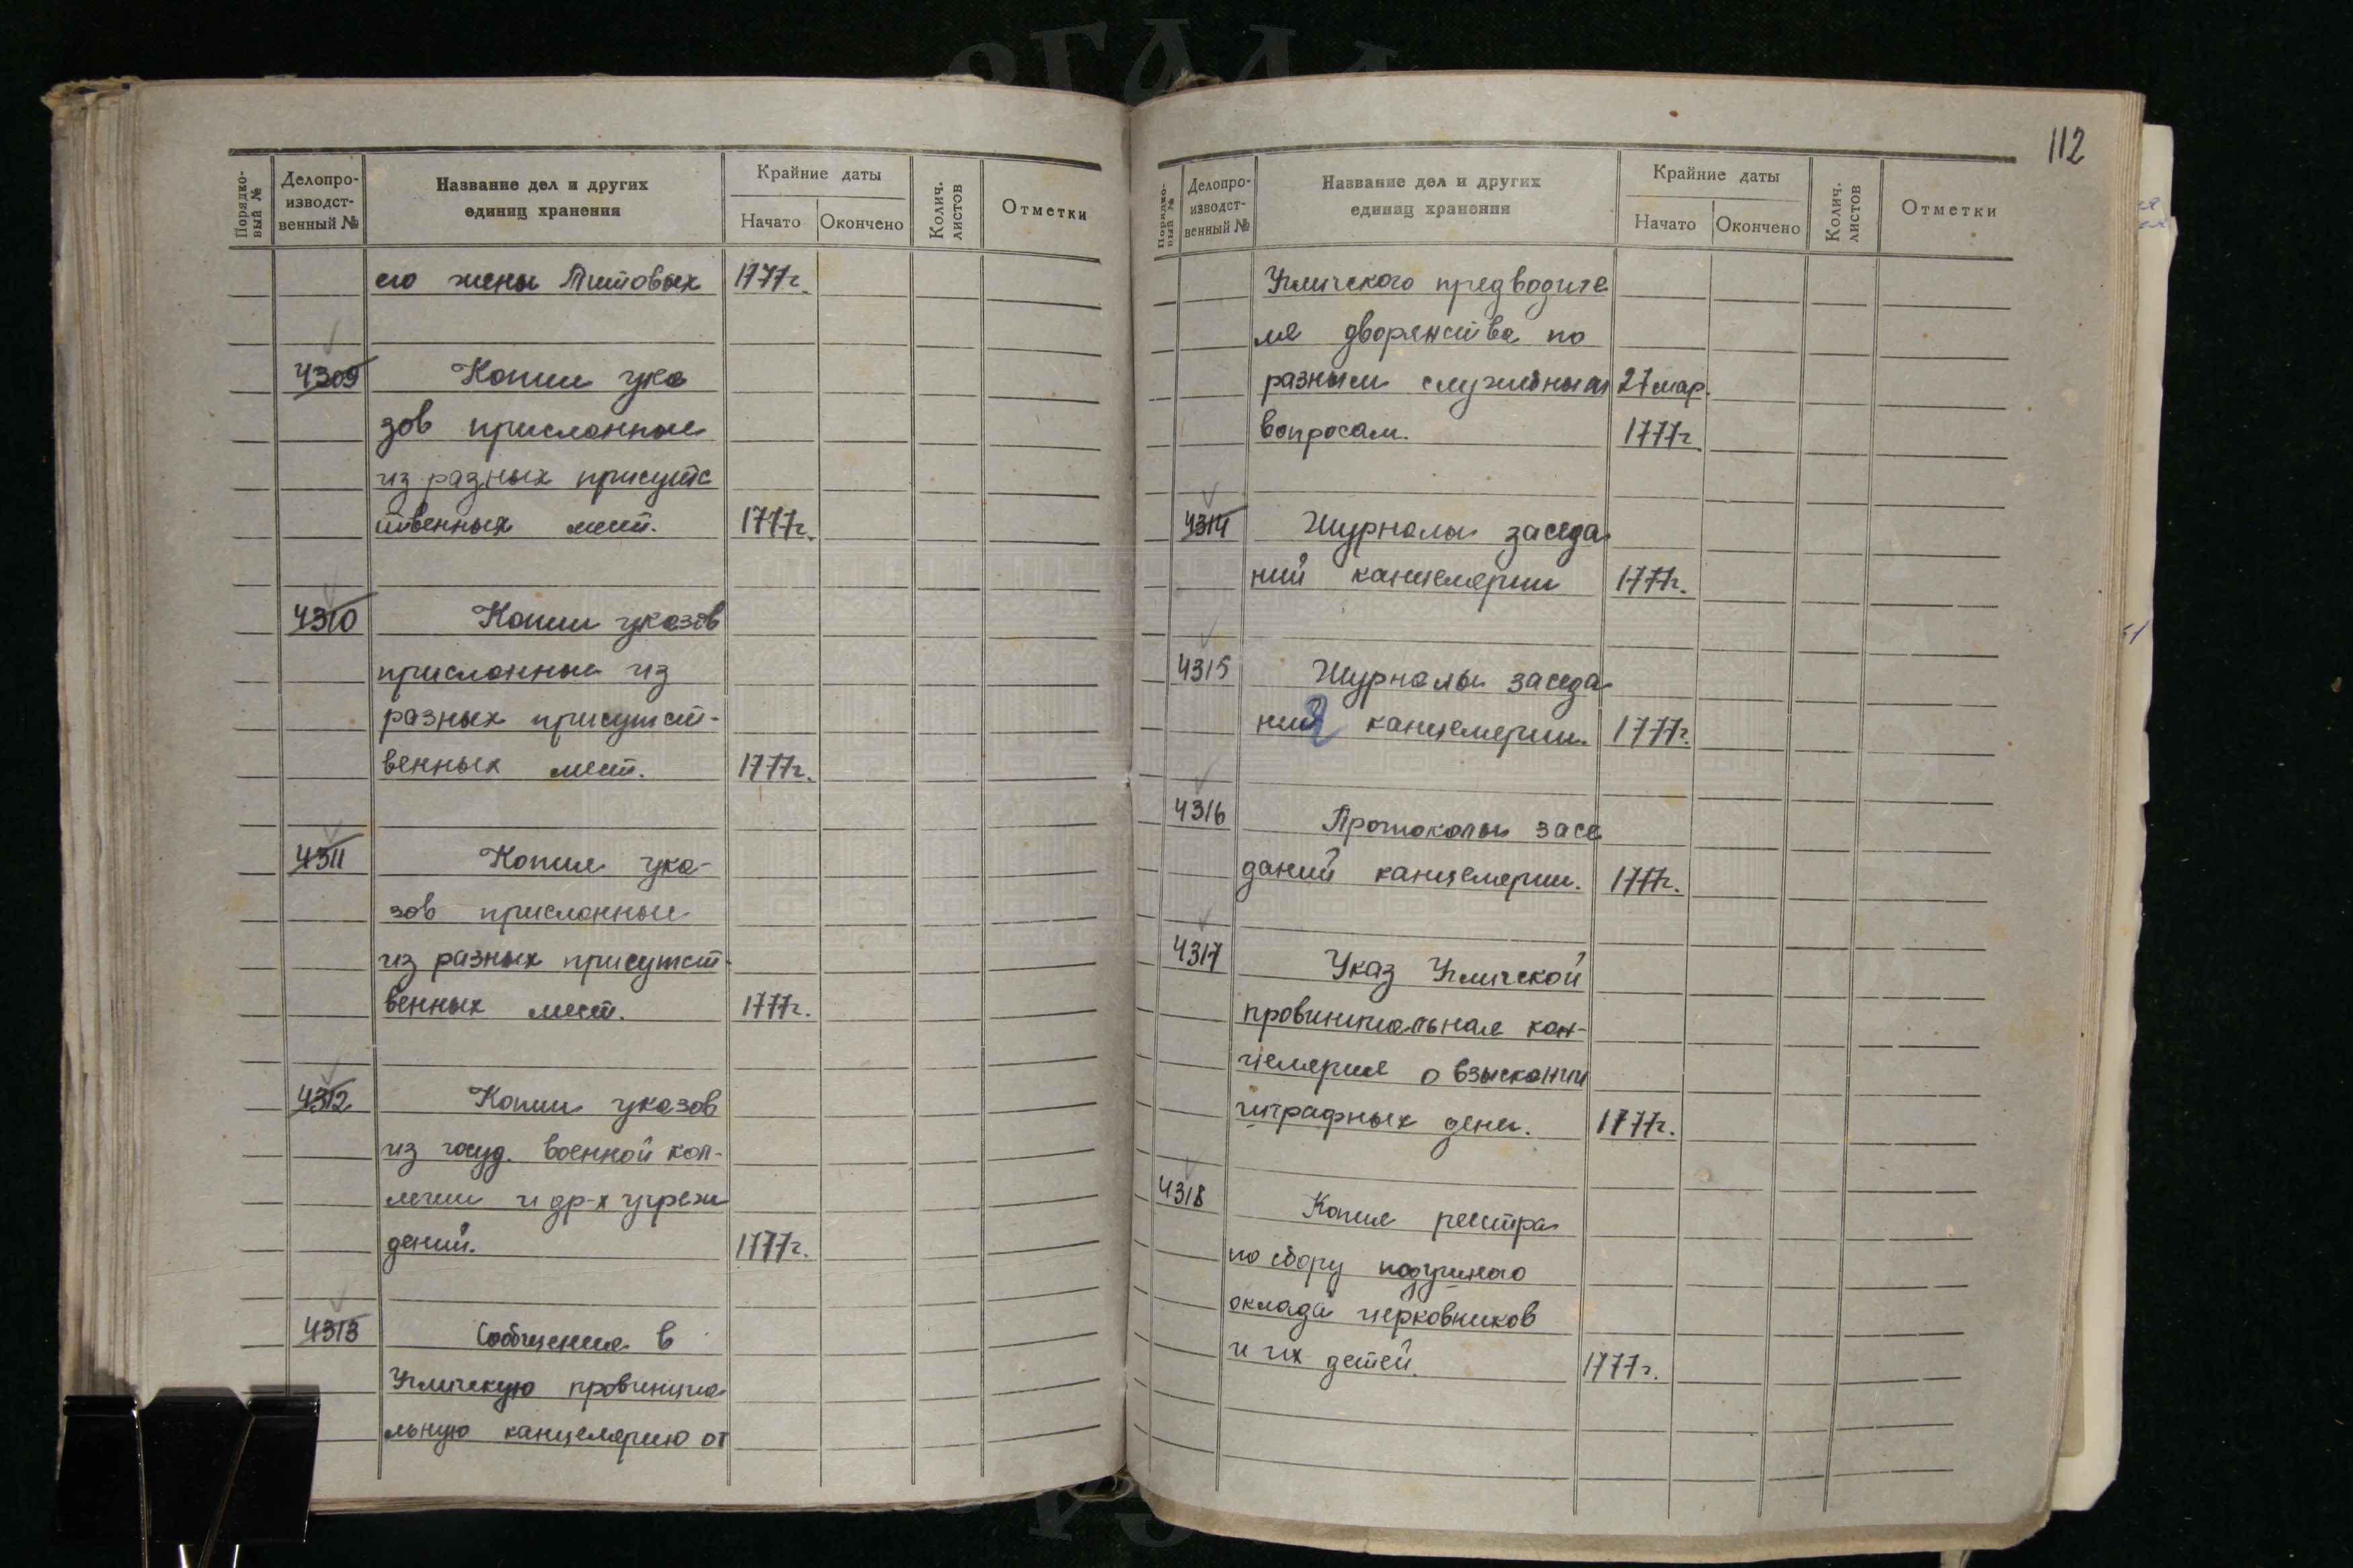 112
Порядко-
вый №
Делопро-
изводст-
венный №
Название дел и других
единиц хранения
Крайние даты
Начато
Окончено
Колич.
листов
Отметки
его жены Титовых 1777г.
4309 Копии ука
зов присланные
из разных присутс
ственных мест. 1777г.
4310 Копии указов
присланные из
разных присутст-
венных мест. 1777г.
4311 Копия ука-
зов присланные
из разных присутст-
венных мест. 1777г.
4312 Копии указов
из госуд. военной кол-
легии и др-х учреж
дений. 1777г.
4313 Сообщения в
Угличскую провинциа
льную канцелярию от
Порядко-
вый №
Делопро-
изводст-
венный №
Название дел и других
единиц хранения
Крайние даты
Начато
Окончено
Колич.
листов
Отметки
Угличского предводите
ля дворянства по
разным служебным 27 мар.
вопросам. 1777г.
4314 Журналы заседа
ний канцелярии 1777г.
4315 Журналы заседа
ний канцелярии. 1777г.
4316 Протоколы засе
даний канцелярии. 1777г.
4317 Указ Угличской
провинциальная кан-
целярия о взыскании
штрафных денег. 1777г.
4318 Копия реестра
по сбору подушного
оклада церковников
и их детей. 1777г.